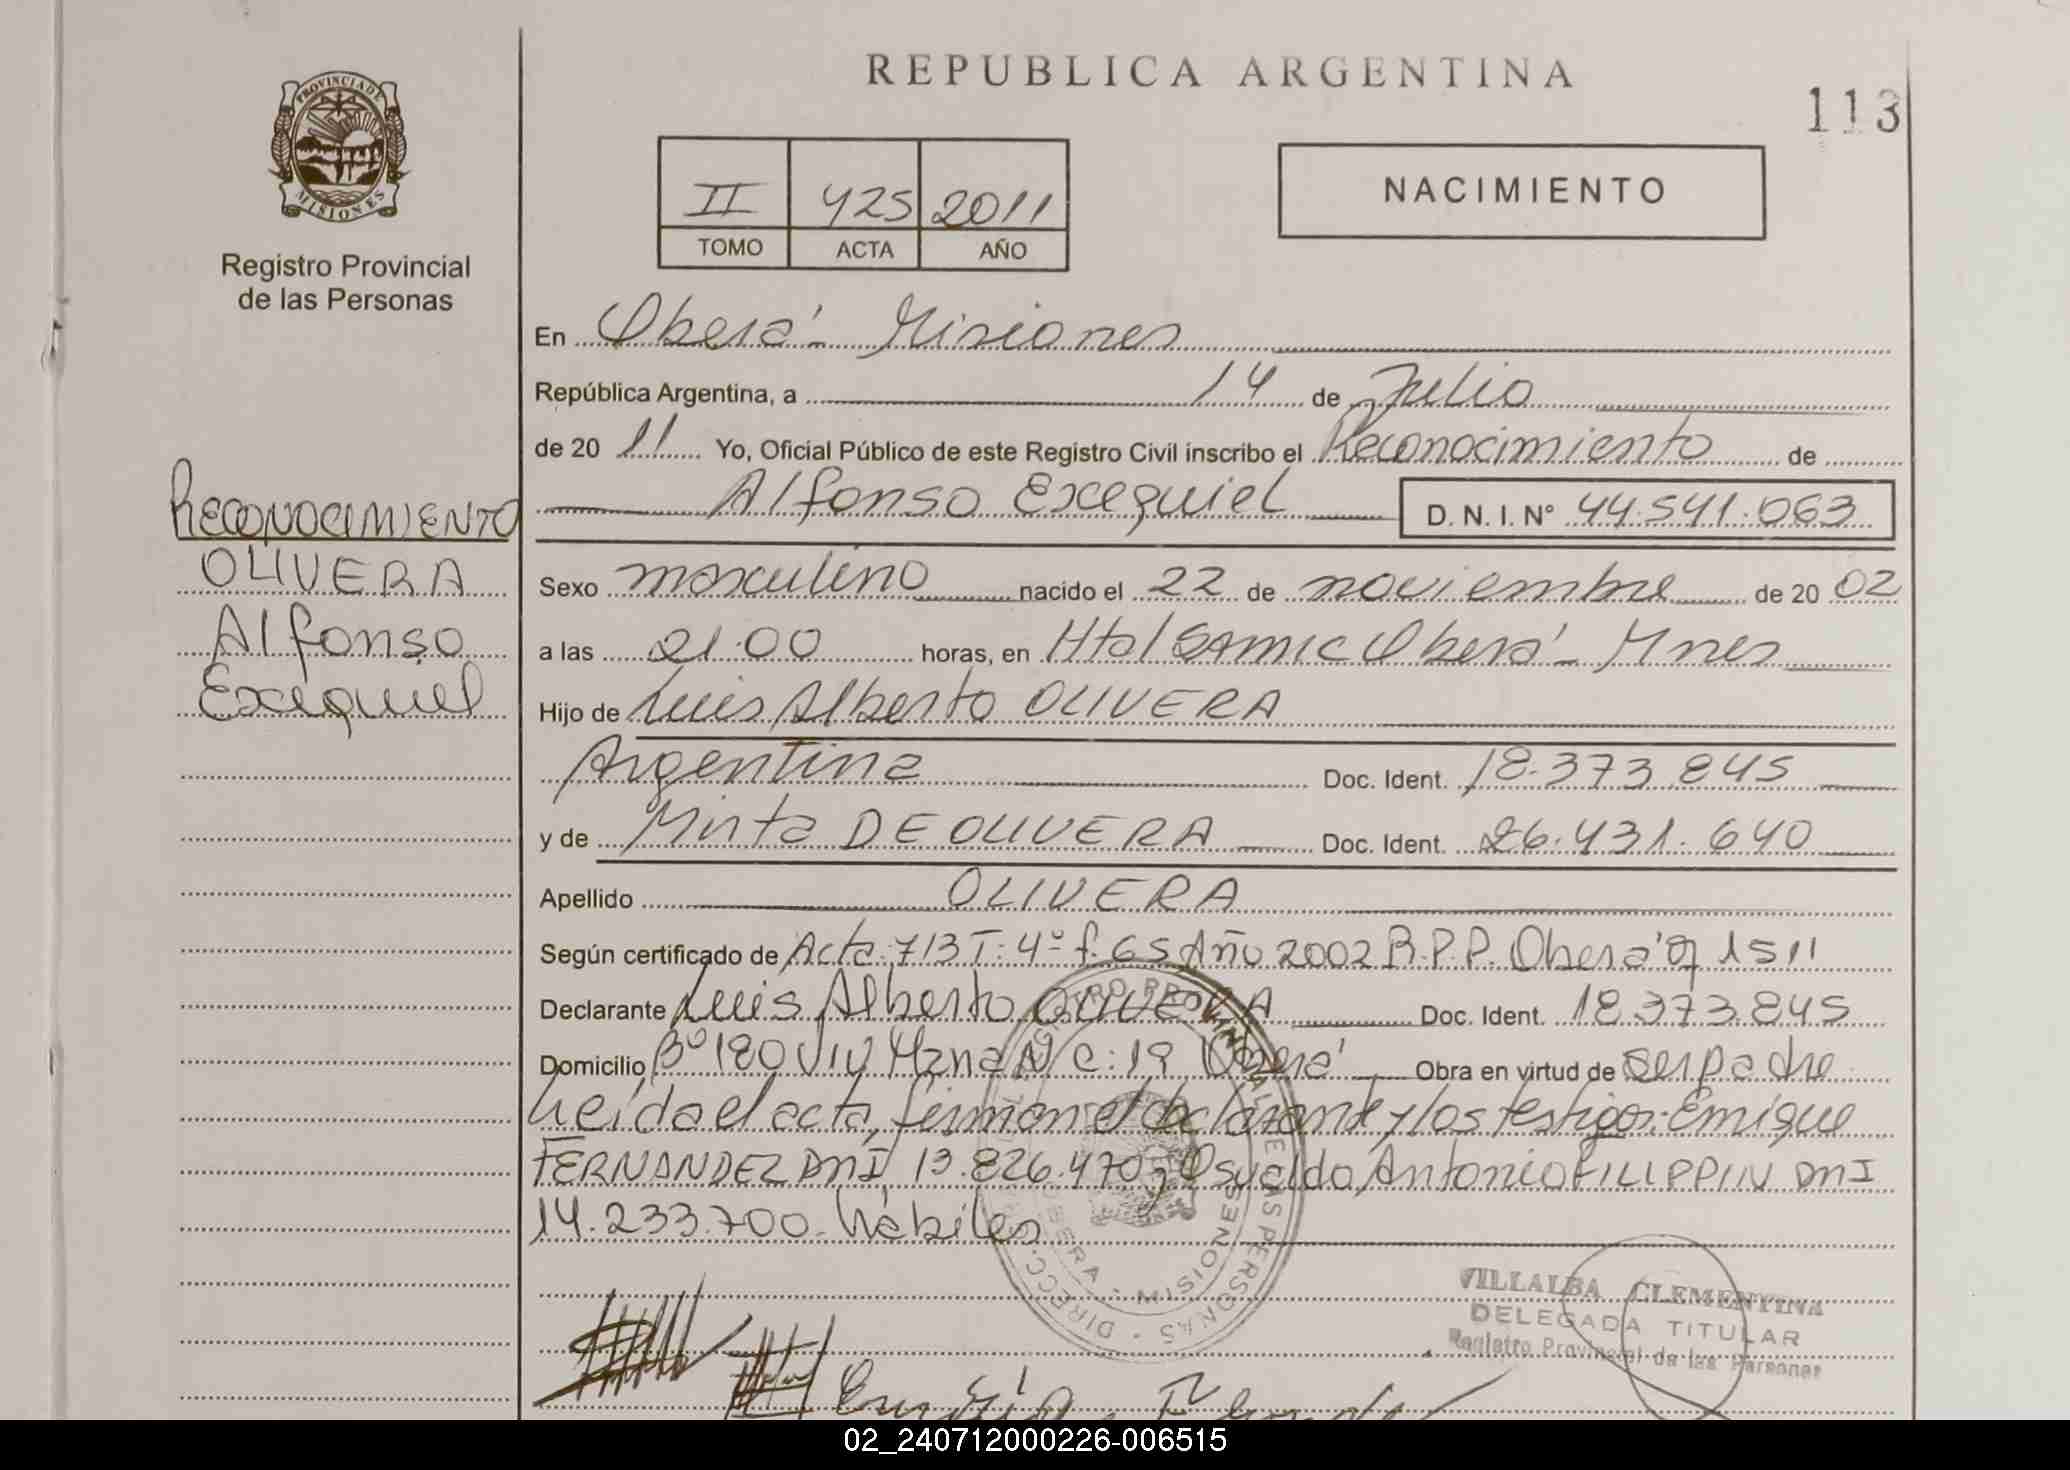 REPUBLICA ARGENTINA
113
PROVINCIA DE
MISIONES
Registro Provincial
de las Personas
II 425 2011
TOMO ACTA AÑO
NACIMIENTO
En Oberá - Misiones
República Argentina, a 14 de Julio
de 20 11 Yo, Oficial Público de este Registro Civil inscribo el Reconocimiento de
Alfonso Exequiel D. N. I. N° 44.541.063
RECONOCIMIENTO
OLIVERA
Alfonso
Exequiel
Sexo masculino nacido el 22 de noviembre de 20 02
a las 21.00 horas, en Htal SAMIC Oberá - Mnes
Hijo de Luis Alberto OLIVERA
Argentina Doc. Ident. 18.373.845
y de Mirta DE OLIVERA Doc. Ident. 26.431.640
Apellido OLIVERA
Según certificado de Acta: 713 T: 4º f. 65 Año 2002 R.P.P. Oberá of 1511
Declarante Luis Alberto OLIVERA Doc. Ident. 18.373.845
Domicilio Bº 180 VIV Mzna N C: 19 Oberá Obra en virtud de ser padre
Leída el acta, firman el declarante y los testigos: Enrique
FERNANDEZ DNI 13.826.470 y Osvaldo Antonio FILIPPIN DNI
14.233.700. hábiles
DIRECC. REGISTRO PROVINCIAL DE LAS PERSONAS
OBERA - MISIONES
VILLALBA CLEMENTINA
DELEGADA TITULAR
Registro Provincial de las Personas
02_240712000226-006515